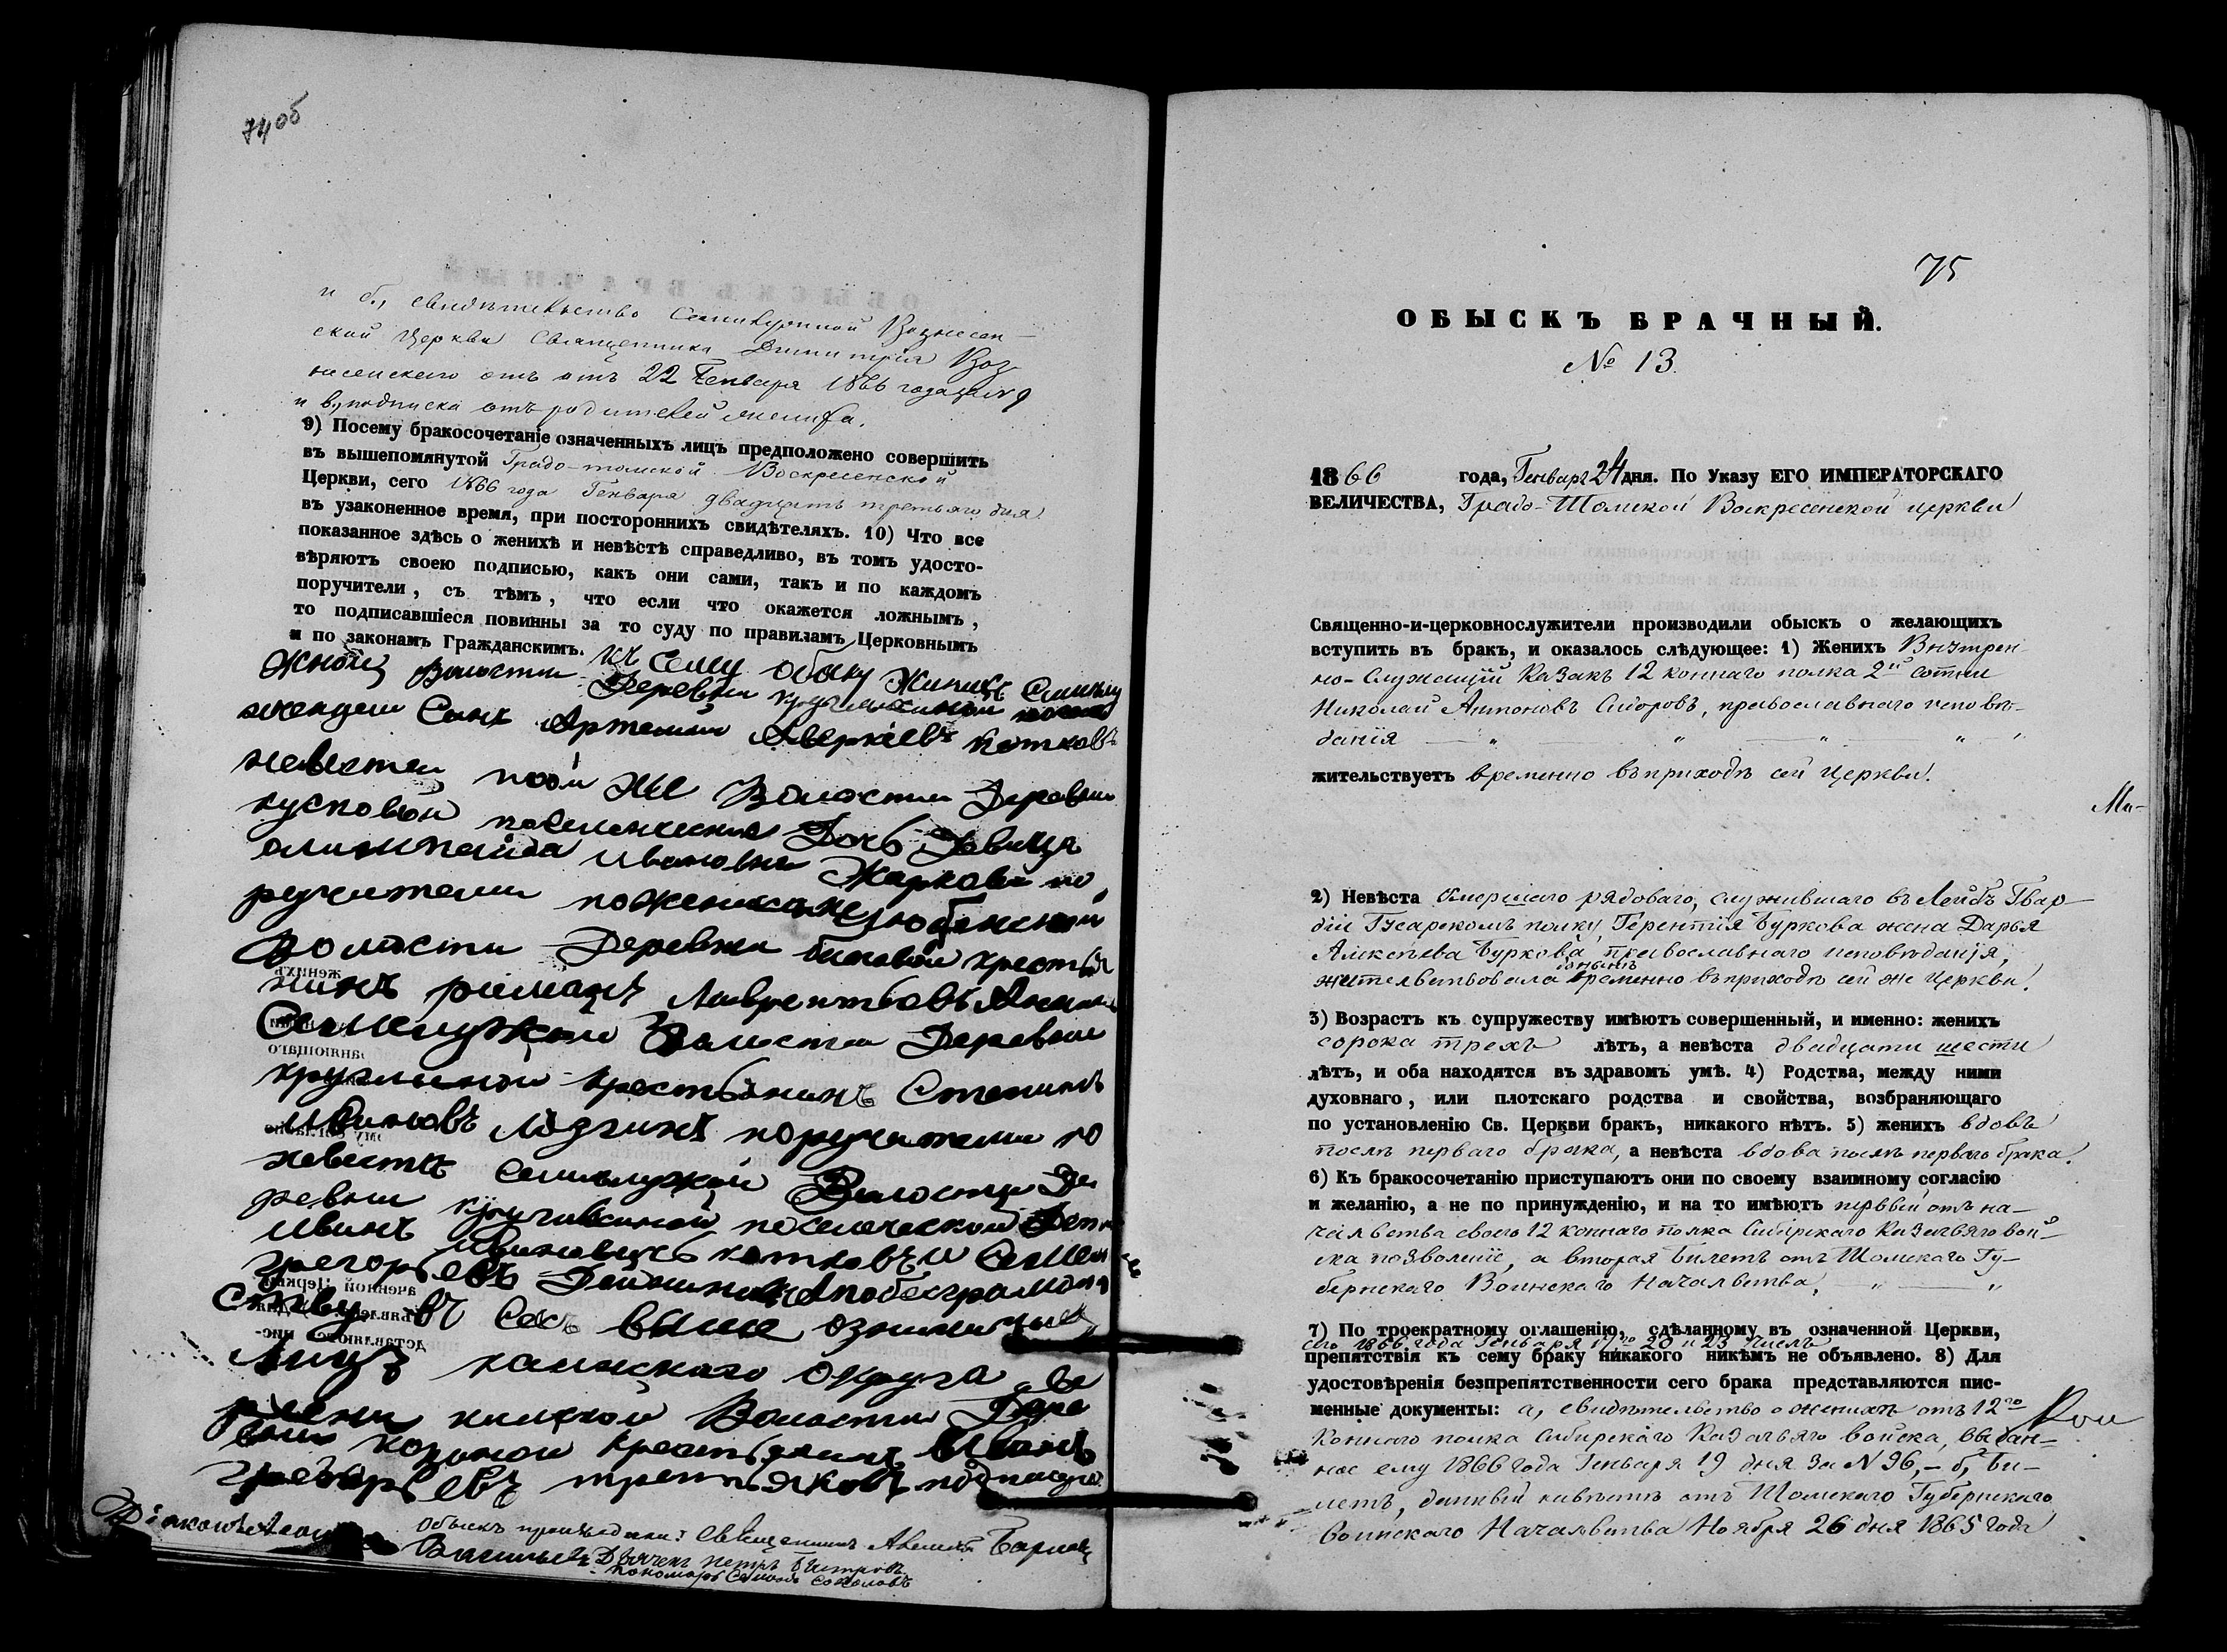 74об
и б., свидѣтельство Семилужной Вознесен-
ской Церкви Священника Димитрія Воз
несенскаго отъ отъ 22 Генваря 1866 года за № 9
и в., подписка отъ родителей жениха.
9) Посему бракосочетаніе означенныхъ лицъ предположено совершить
въ вышепомянутой Градо-томской Воскресенской
Церкви, сего 1866 года Генваря двадцать третьяго дня
въ узаконенное время, при постороннихъ свидѣтеляхъ. 10) Что все
показанное здѣсь о женихѣ и невѣстѣ справедливо, въ томъ удосто-
вѣряютъ своею подписью, какъ они сами, такъ и по каждомъ
поручители, съ тѣмъ, что если что окажется ложнымъ,
то подписавшіеся повинны за то суду по правиламъ Церковнымъ
и по законамъ Гражданскимъ. къ сему обыску Жиних Семилу
жной Волости Деревни
Сынъ Артемий Аверкіевъ Котковъ
невестеи той же Волости Деревни
кусковой поселенческия Дочь Девица
олимпиаѣда Ивановна Жаркова по
ручители пожениха
Волости Деревни биковой крестья
нинъ раманъ Лаврентьевъ
Семилужной Волости Деревни
круглыхиной крестьянинъ Степанъ
Ивановъ Лозгинъ поручители по
невестѣ семилужной Волости Де
ревни поселеческой
Иванъ Ивановичь котковъ и Семен
грегорьевъ апобезграмот
ству ихъ Всехъ выше
Лицъ каинскаго округа
Волости Дере
вни козиной крестьянинъ Иванъ
грегорьевъ третьяковъ подписуюсь
Діаконъ
Обыскъ производили: Священникъ Алексѣй
Васильевъ Дьячекъ Петръ
Пономарь Семенъ Соколовъ
75
ОБЫСКЪ БРАЧНЫЙ.
№ 13.
1866 года, Генваря 24 дня. По Указу ЕГО ИМПЕРАТОРСКАГО
ВЕЛИЧЕСТВА, Градо-Томской Воскресенской церкви
Священно-и-церковнослужители производили обыскъ о желающихъ
вступить въ бракъ, и оказалось слѣдующее: 1) Женихъ Внутрен-
но-Служащій Казакъ 12 коннаго полка 2й сотни
Николай Антоновъ Сидоровъ, православнаго исповѣ-
данія — „ — „ — „ — „ — „
жительствуетъ временно въ приходѣ сей Церкви.
Ми-
2) Невѣста Умершаго рядоваго, служившаго въ Лейбъ Гвар
діи Гусарскомъ полку, Терентія Буркова жена Дарья
Алексѣева Буркова православнаго исповѣданія,
жительствовала временно въ приходѣ сей же Церкви.
3) Возрастъ къ супружеству имѣютъ совершенный, и именно: женихъ
сорока трехъ лѣтъ, а невѣста двадцати шести
лѣтъ, и оба находятся въ здравомъ умѣ. 4) Родства, между ними
духовнаго, или плотскаго родства и свойства, возбраняющаго
по установленію Св. Церкви бракъ, никакого нѣтъ. 5) женихъ вдовъ
послѣ перваго брака, а невѣста вдова послѣ перваго брака.
6) Къ бракосочетанію приступаютъ они по своему взаимному согласію
и желанію, а не по принужденію, и на то имѣютъ первый отъ на-
чальства своего 12 коннаго полка Сибирскаго Казачьяго вой-
ска позволеніе, а вторая билетъ отъ Томскаго Гу-
бернскаго Воинскаго Начальства, — „ — „
7) По троекратному оглашенію, сдѣланному въ означенной Церкви,
сего 1866 года Генваря 17го 20 и 23 числъ
препятствія къ сему браку никакого никѣмъ не объявлено. 8) Для
удостовѣренія безпрепятственности сего брака представляются пис-
менные документы: а, свидѣтельство о женихѣ отъ 12го
Коннаго полка Сибирскаго Казачьяго войска, выдан-
ное ему 1866 года Генваря 19 дня за № 96,- б, би-
летъ, данный невѣстѣ отъ Томскаго Губернскаго
Воинскаго Начальства Ноября 26 дня 1865 года